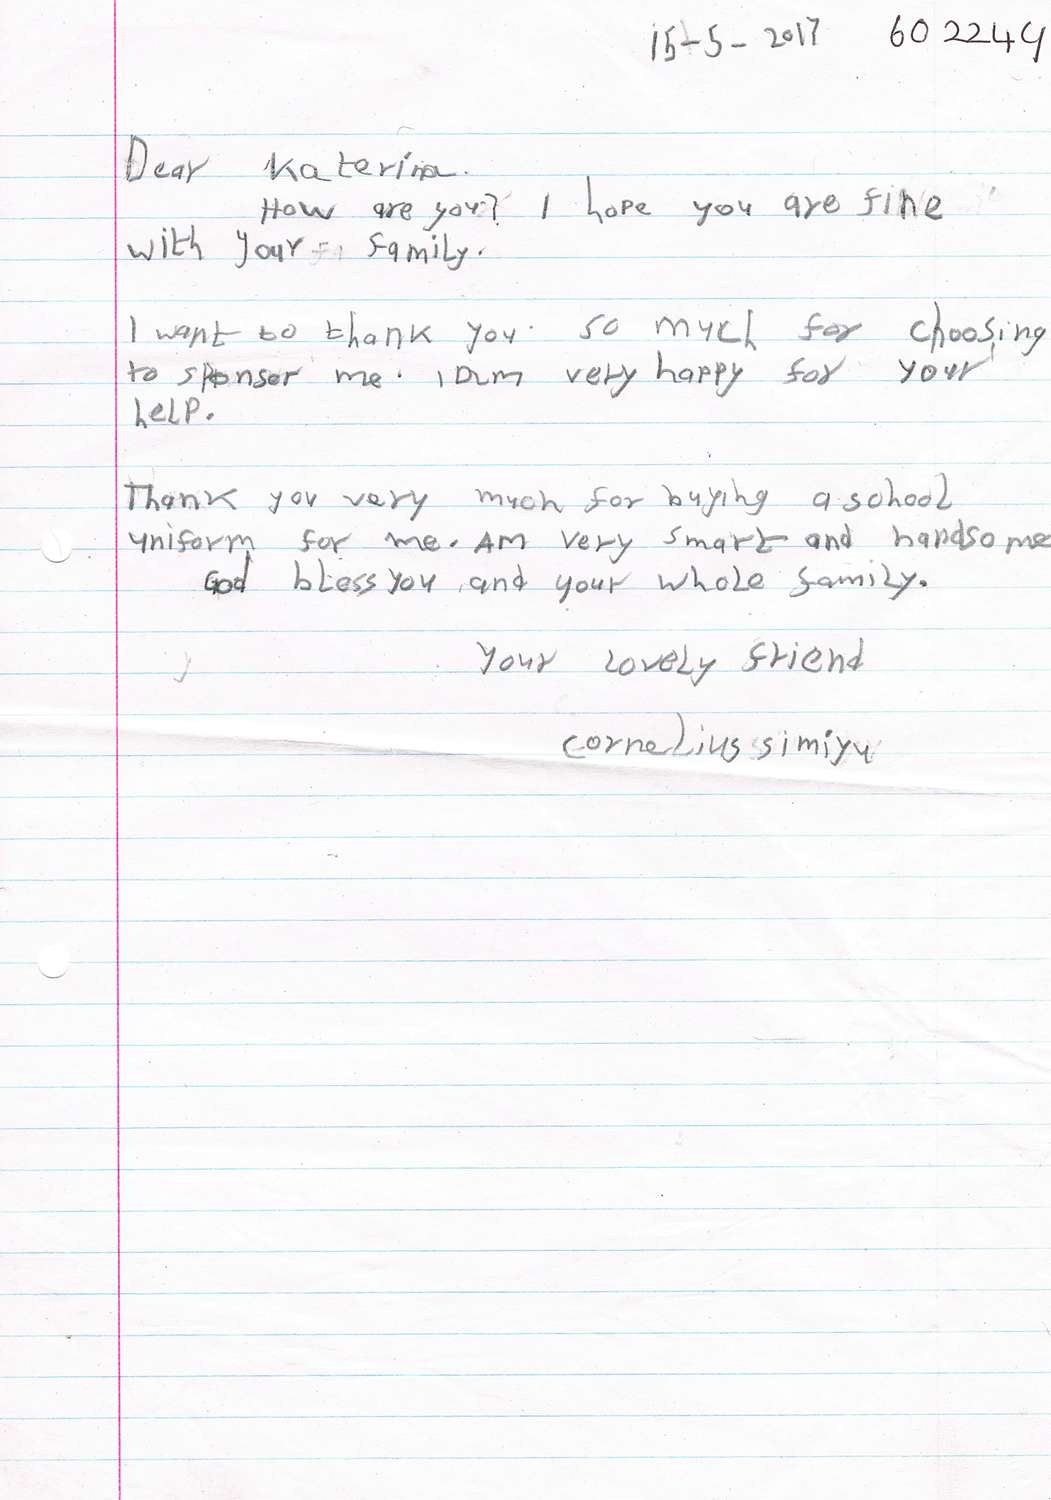 15-5-2017 602244
Dear Katerina.
How are you? I hope you are fine
with your family.
I want to thank you. so much for choosing
to sponser me. I am very happy for your
help.
Thank you very much for buying a school
uniform for me. AM very smart and handsome
God bless you and your whole family.
Your lovely friend
cornelius simiyu